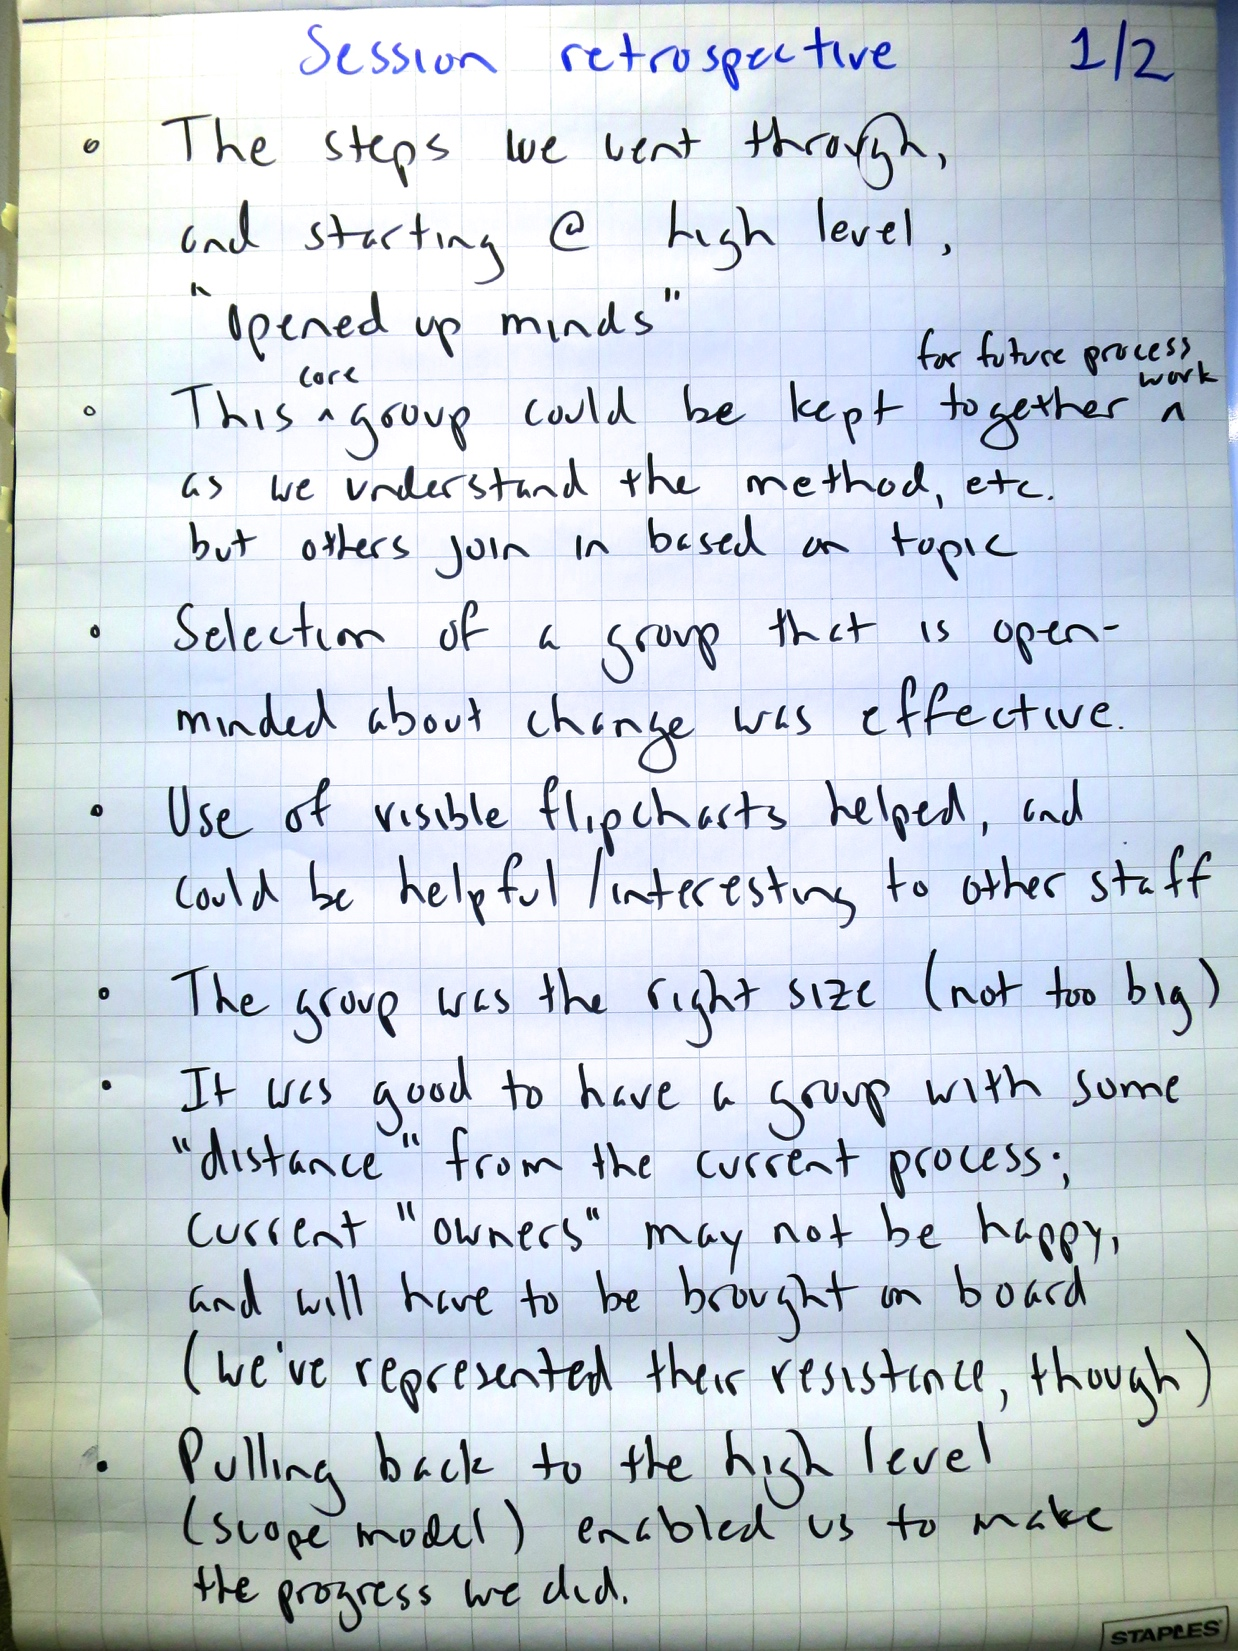 Session retrospective 1/2
• The steps we went through,
and starting @ high level,
"opened up minds"
for future process
work
core
• This ^ group could be kept together ^
as we understand the method, etc.
but others join in based on topic
• Selection of a group that is open-
minded about change was effective.
• Use of visible flipcharts helped, and
could be helpful/interesting to other staff
• The group was the right size (not too big)
• It was good to have a group with some
"distance" from the current process;
current "owners" may not be happy,
and will have to be brought on board
(we've represented their resistance, though)
• Pulling back to the high level
(scope model) enabled us to make
the progress we did.
STAPLES